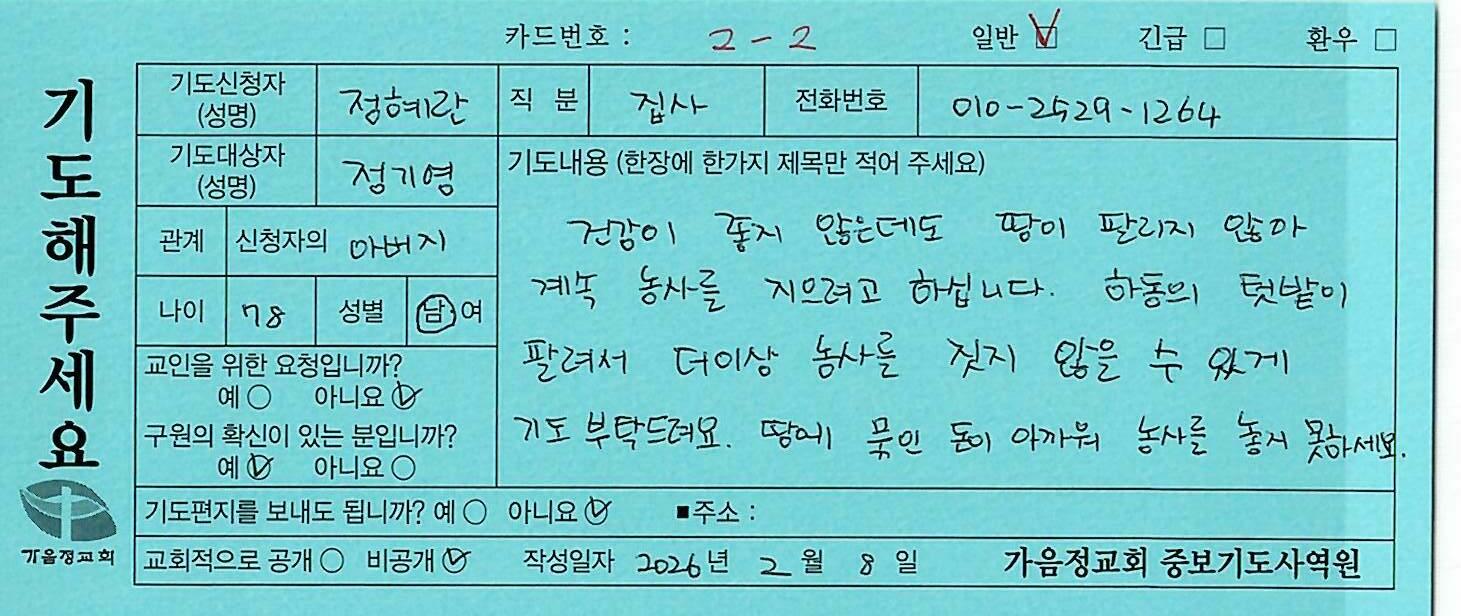 카드번호 : 2-2 일반 ☑ 긴급 □ 환우 □
기도해주세요
기도신청자 (성명) 정혜란 직 분 집사 전화번호 010-2529-1264
기도대상자 (성명) 정기영
관계 신청자의 아버지
나이 78 성별 남 여
교인을 위한 요청입니까?
예 ○ 아니요 ☑
구원의 확신이 있는 분입니까?
예 ☑ 아니요 ○
기도내용 (한장에 한가지 제목만 적어 주세요)
건강이 좋지 않은데도 땅이 팔리지 않아
계속 농사를 지으려고 하십니다. 하동의 텃밭이
팔려서 더이상 농사를 짓지 않을 수 있게
기도 부탁드려요. 땅에 묶인 돈이 아까워 농사를 놓지 못하세요.
기도편지를 보내도 됩니까? 예 ○ 아니요 ☑ ■주소 :
교회적으로 공개 ○ 비공개 ☑ 작성일자 2026년 2월 8일 가음정교회 중보기도사역원
가음정교회